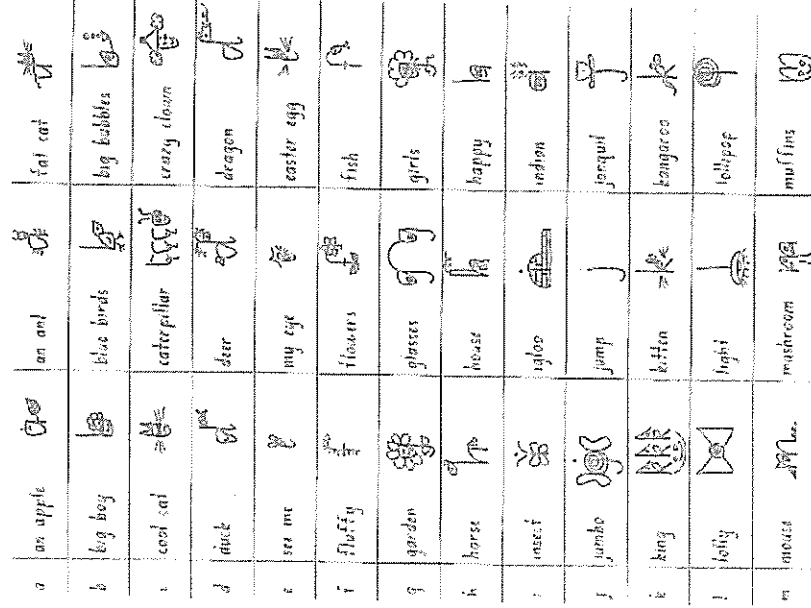 a an apple an ant fat cat
b big boy blue birds big bubbles
c cool cat caterpillar crazy clown
d duck deer dragon
e see me my eye easter egg
f fluffy flowers fish
g garden glasses girls
h horse house happy
i insect igloo indian
j jumbo jump jonquil
k king kitten kangaroo
l lolly light lollipop
m mouse mushroom muffins